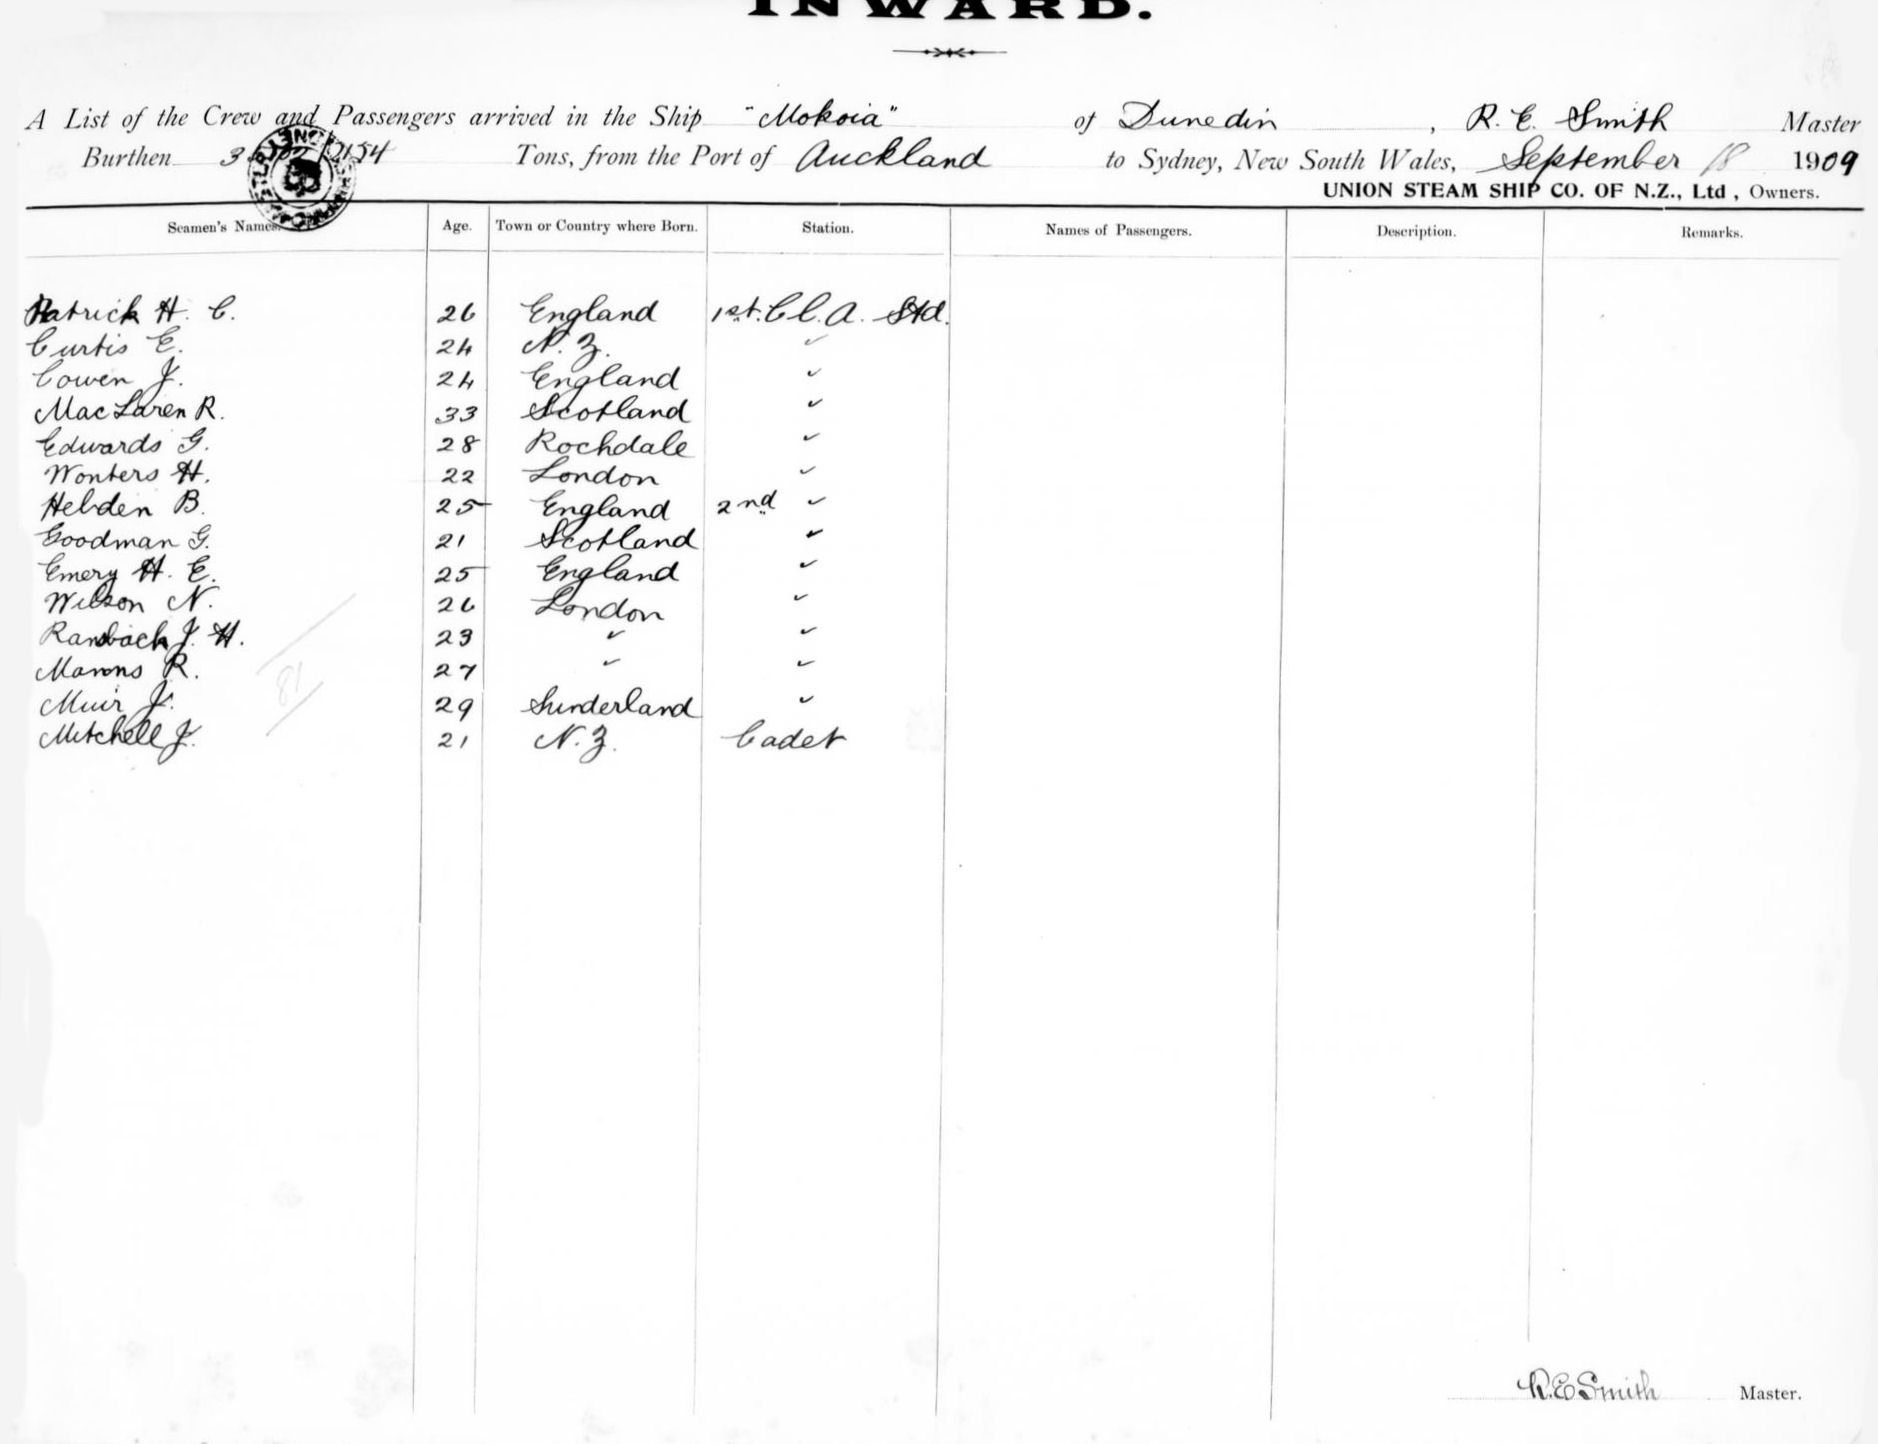 INWARD.
A List of the Crew and Passengers arrived in the Ship "Mokoia" of Dunedin, R. E. Smith Master
Burthen 3 2154 Tons, from the Port of Auckland to Sydney, New South Wales, September 18 1909
UNION STEAM SHIP CO. OF N.Z., Ltd, Owners.
Seamen's Names. Age. Town or Country where Born. Station. Names of Passengers. Description. Remarks.
Patrick H. C. 26 England 1st. Cl. A. Std.
Curtis E. 24 N. Z. "
Cowen J. 24 England "
MacLaren R. 33 Scotland "
Edwards G. 28 Rochdale "
Wonters H. 22 London "
Hebden B. 25 England 2nd "
Goodman G. 21 Scotland "
Emery H. E. 25 England "
Wilson N. 26 London "
J. H. 23 " "
R. 27 " "
Muir J. 29 Sunderland "
Mitchell J. 21 N. Z. Cadet
81
R. E. Smith Master.